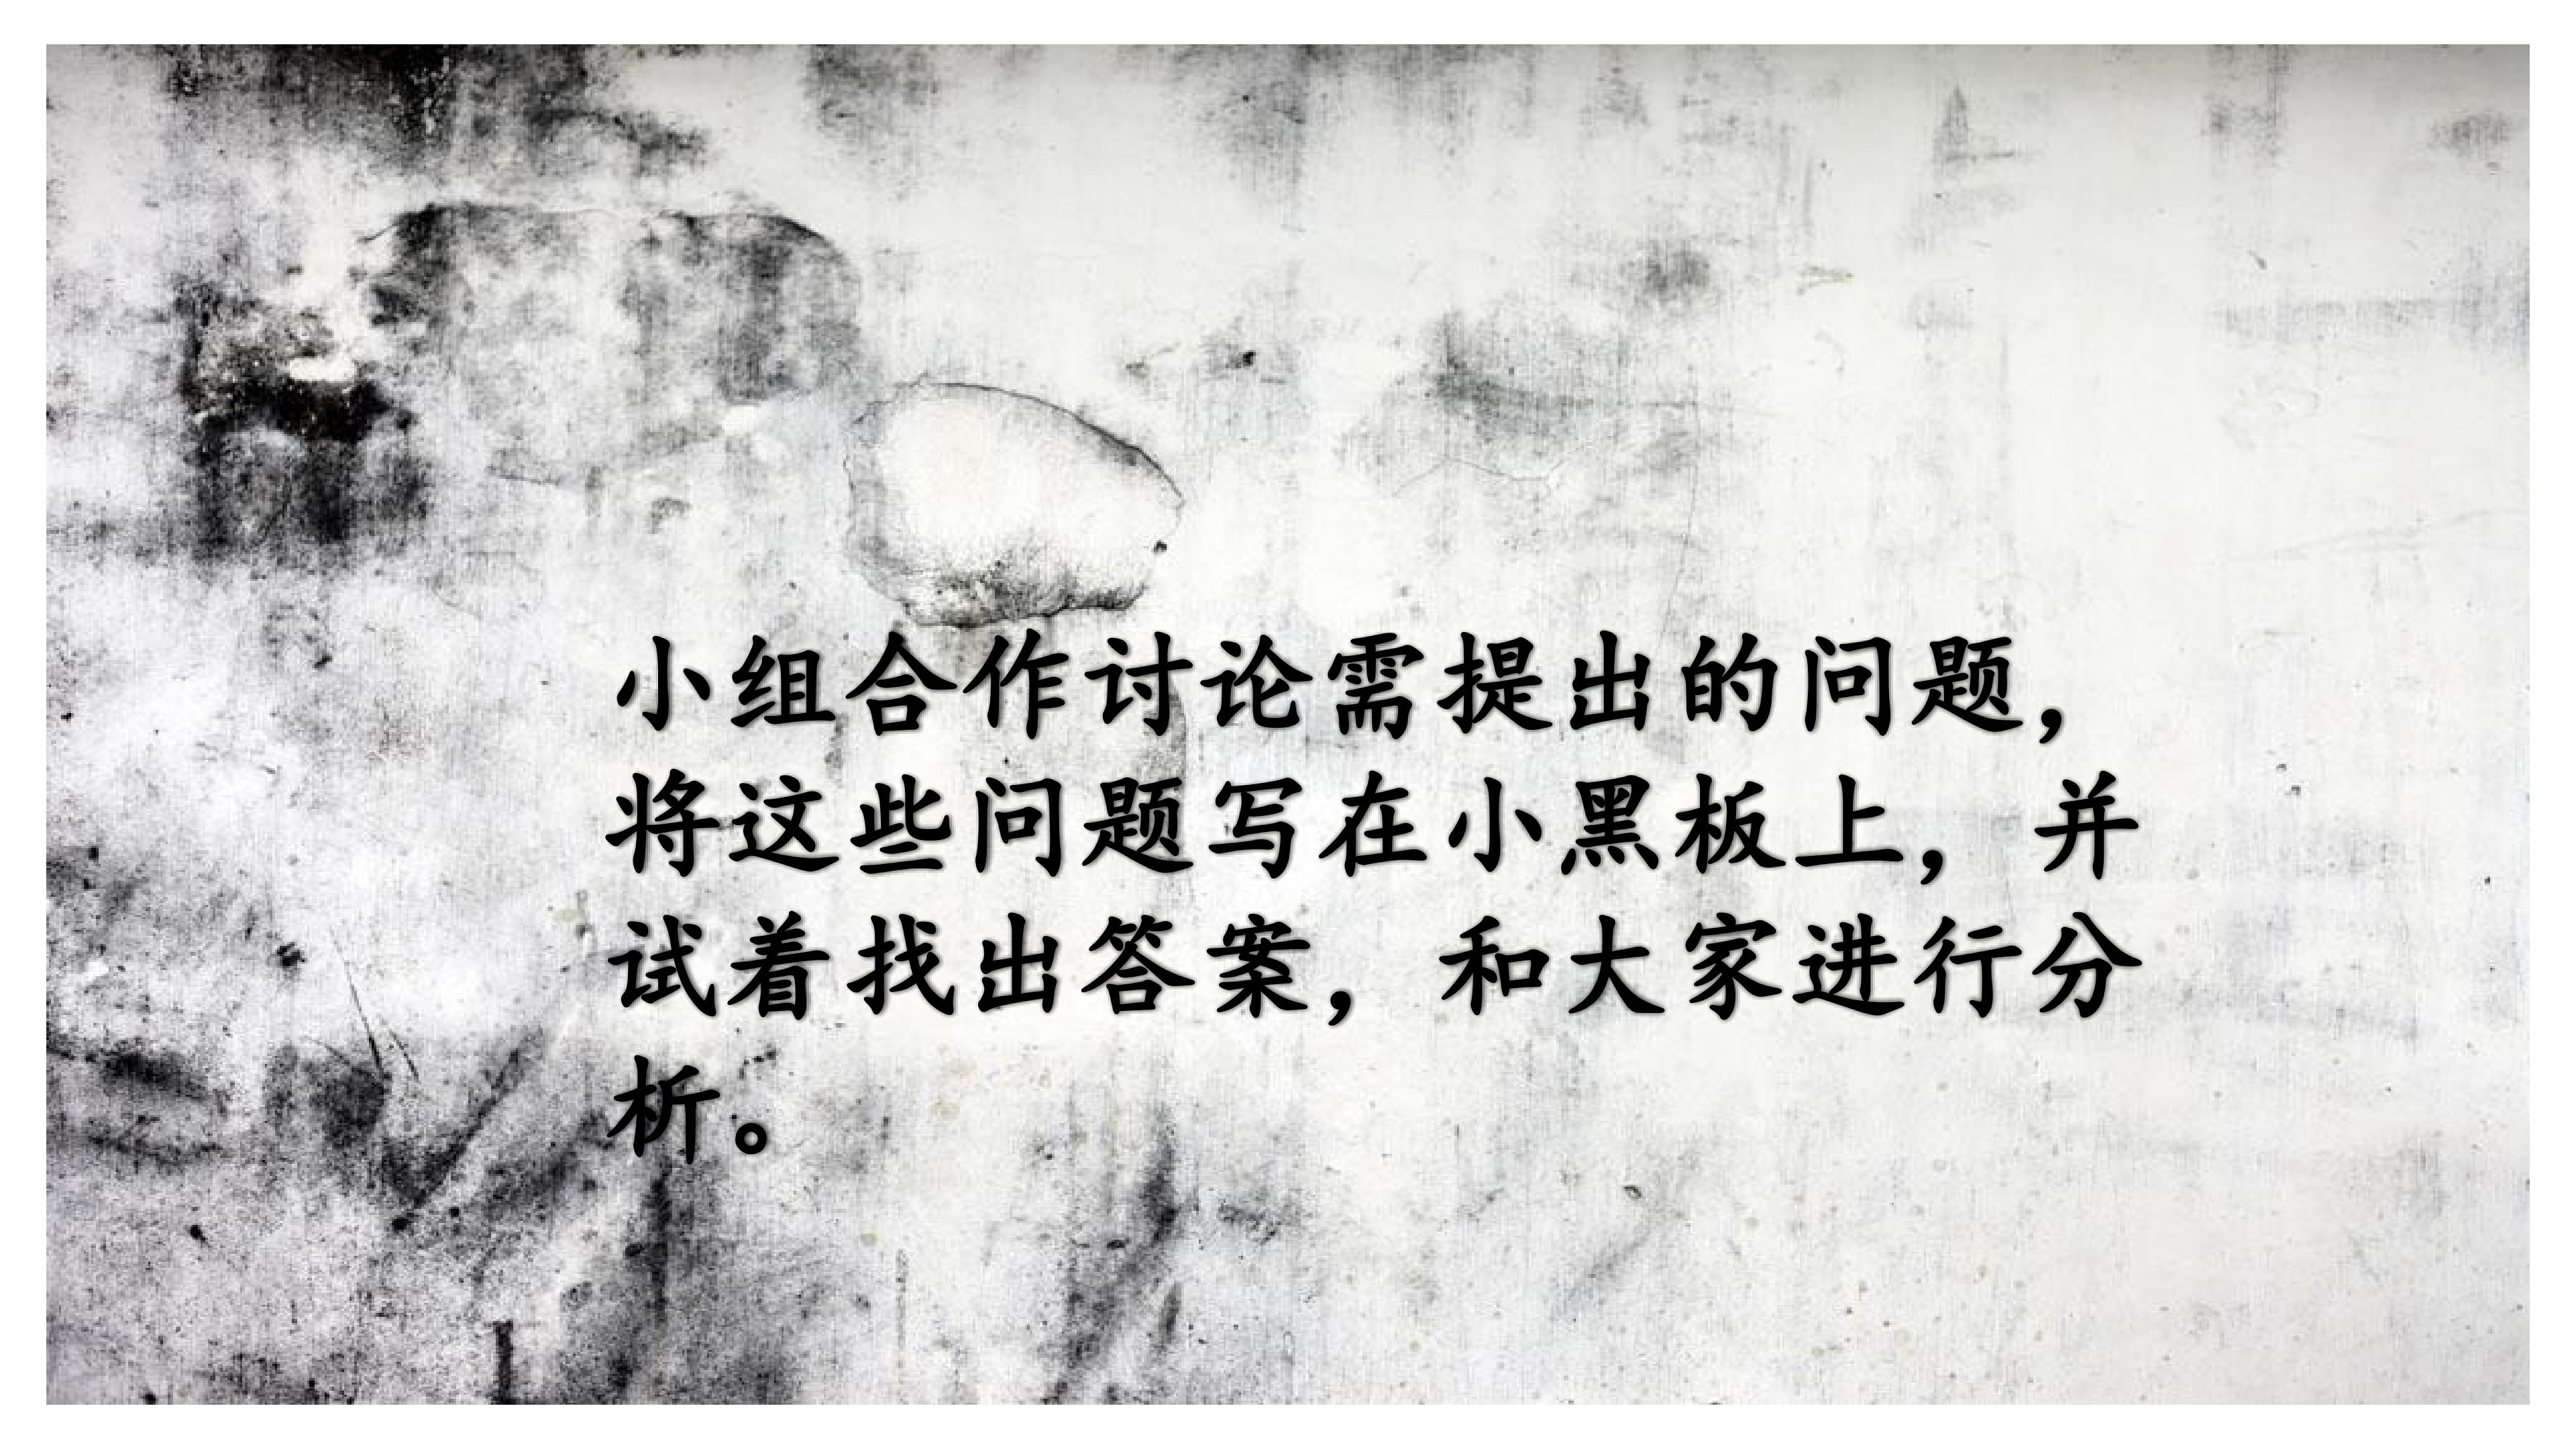 小组合作讨论需提出的问题，
将这些问题写在小黑板上，并
试着找出答案，和大家进行分
析。